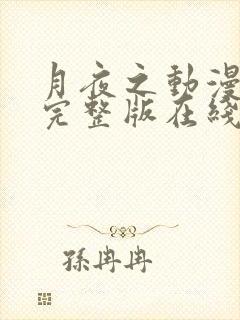 月夜之動漫
完整版在綫
孫冉冉